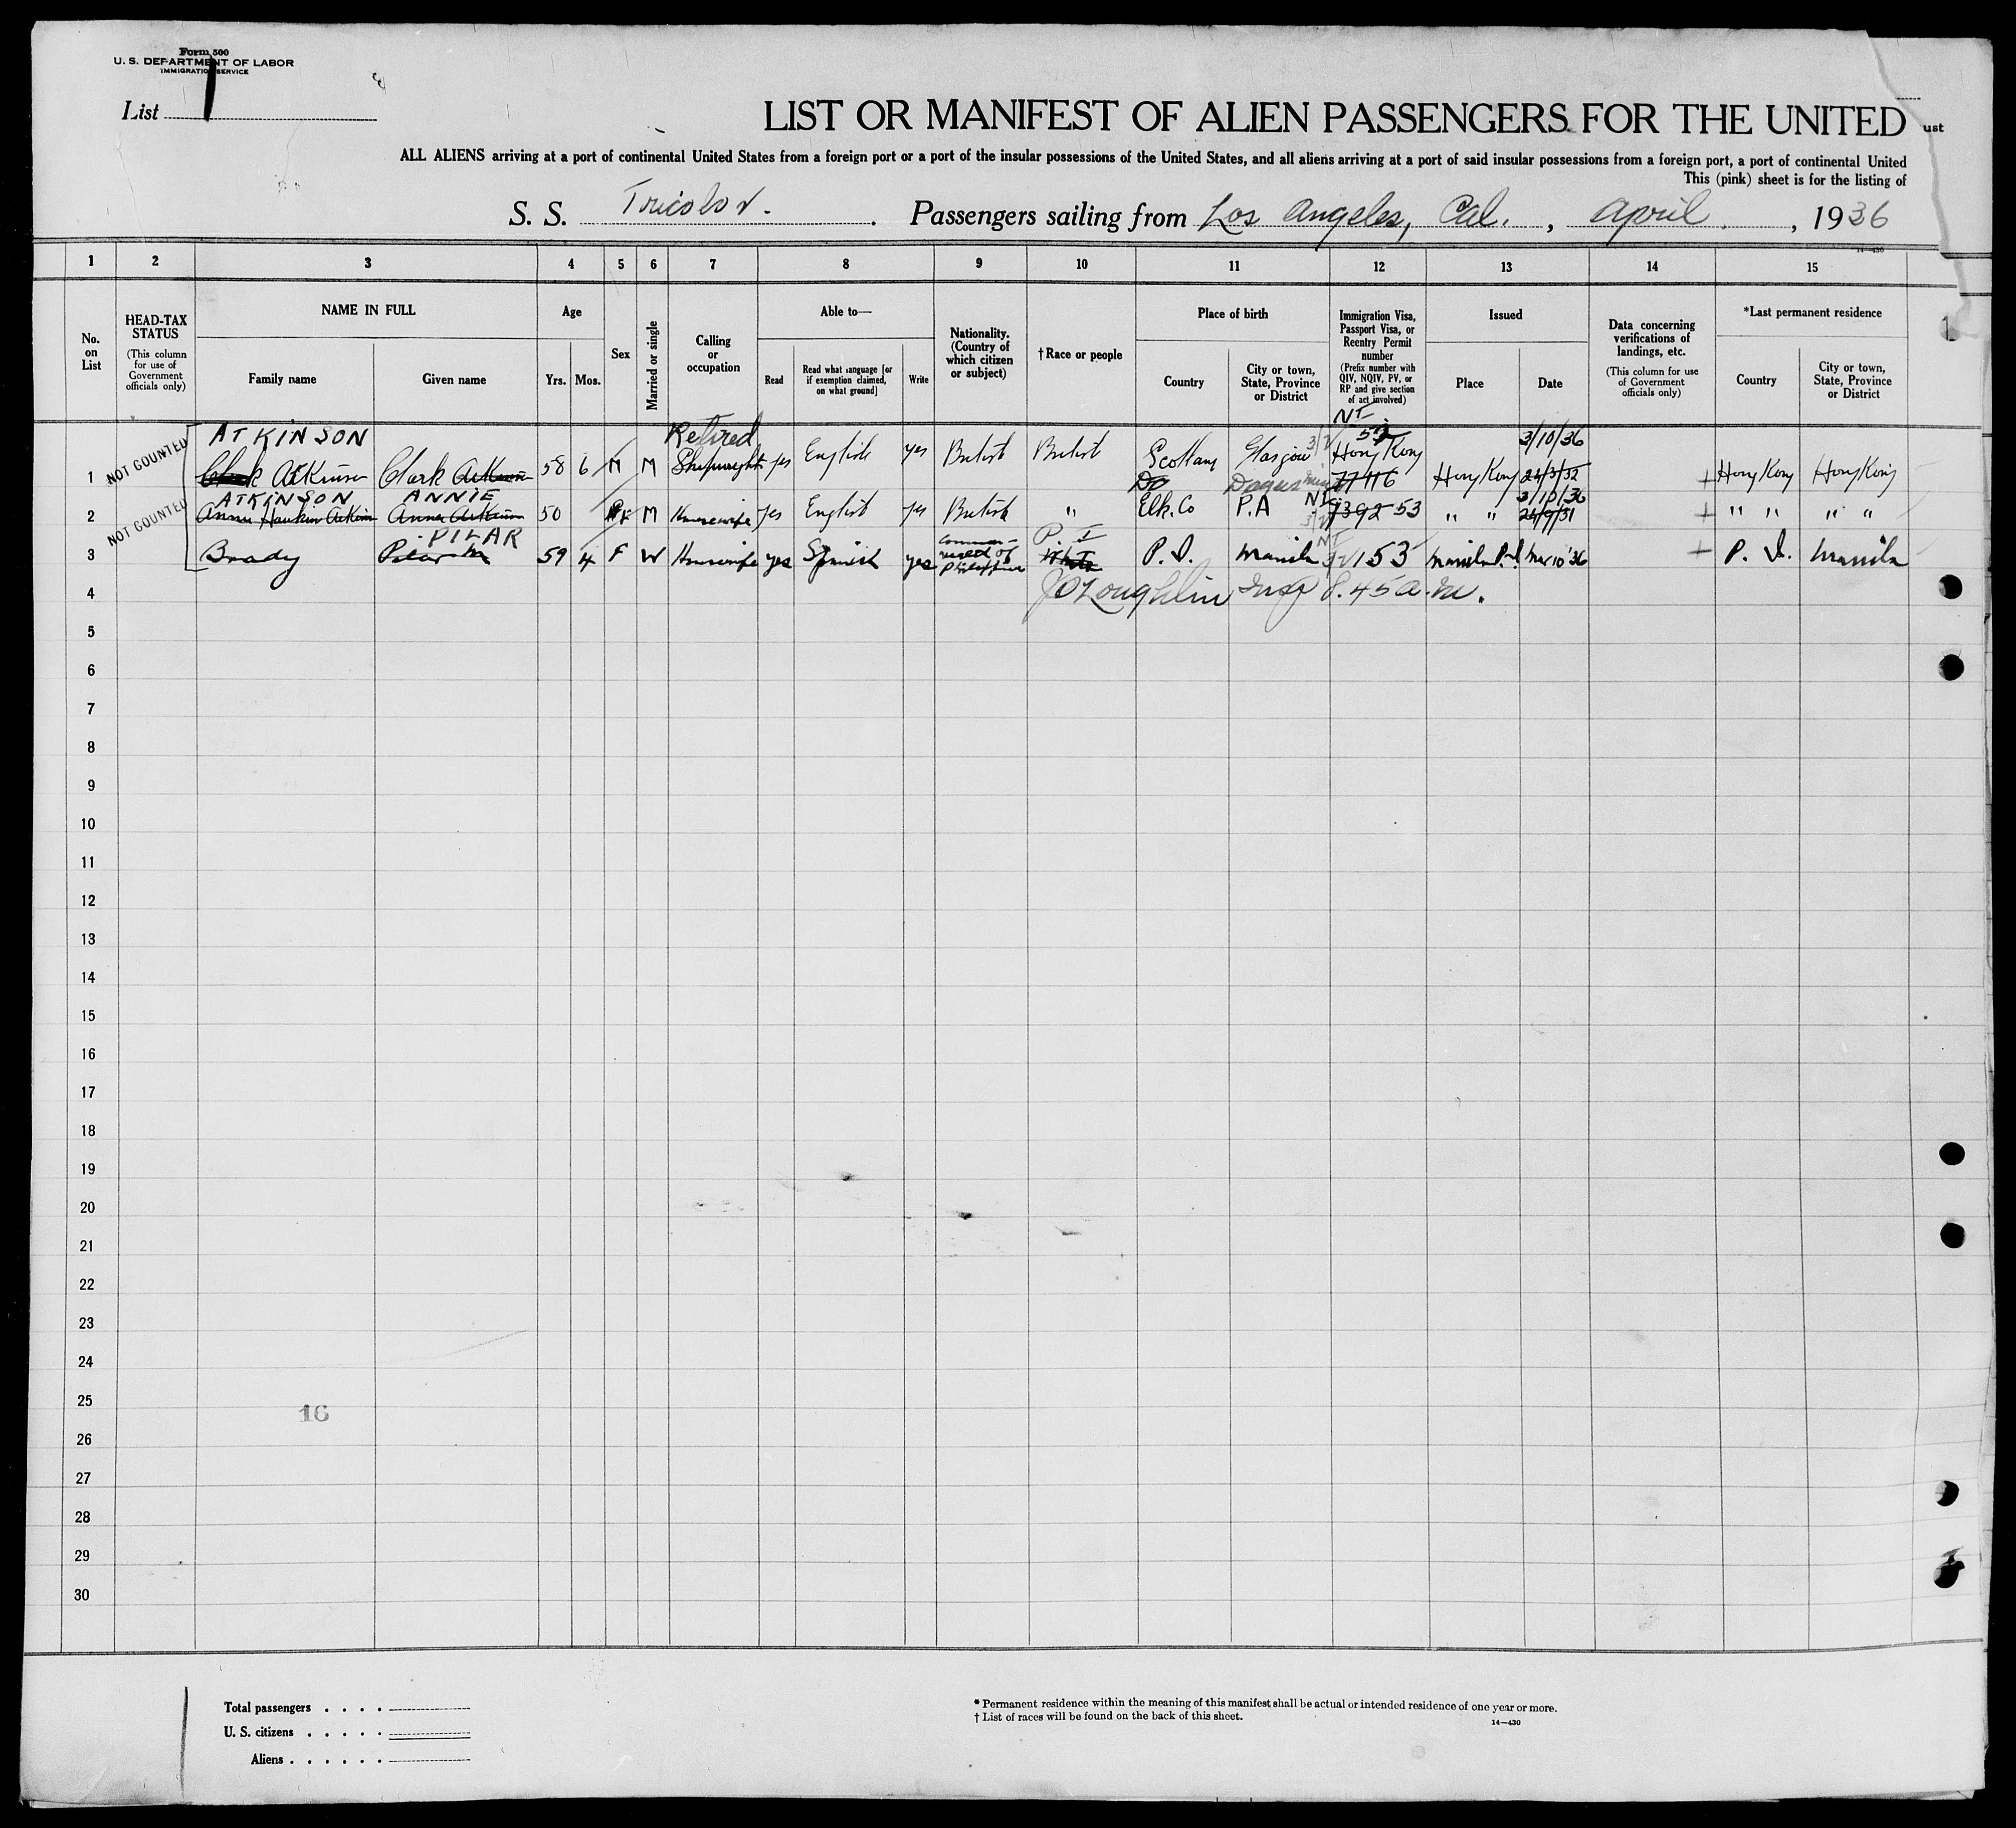 Form 500
U. S. DEPARTMENT OF LABOR
IMMIGRATION SERVICE
List 1
LIST OR MANIFEST OF ALIEN PASSENGERS FOR THE UNITED
ust
ALL ALIENS arriving at a port of continental United States from a foreign port or a port of the insular possessions of the United States, and all aliens arriving at a port of said insular possessions from a foreign port, a port of continental United
This (pink) sheet is for the listing of
S. S. Tricolor. Passengers sailing from Los Angeles, Cal., April, 1936
14—430
1 2 3 4 5 6 7 8 9 10 11 12 13 14 15
No. on List
HEAD-TAX STATUS (This column for use of Government officials only)
NAME IN FULL
Family name Given name
Age
Yrs. Mos.
Sex
Married or single
Calling or occupation
Able to—
Read Read what language [or if exemption claimed, on what ground] Write
Nationality. (Country of which citizen or subject)
†Race or people
Place of birth
Country City or town, State, Province or District
Immigration Visa, Passport Visa, or Reentry Permit number (Prefix number with QIV, NQIV, PV, or RP and give section of act involved)
Issued
Place Date
Data concerning verifications of landings, etc. (This column for use of Government officials only)
*Last permanent residence
Country City or town, State, Province or District
1
ATKINSON Retired NT 52 3/10/36
1 NOT COUNTED Clark Atkinson Clark Atkinson 58 6 M M Shipwright yes English yes British British Scotland Glasgow 3/2 Hong Kong 77116 Hong Kong 24/3/32 Hong Kong Hong Kong
ATKINSON ANNIE Do NT 3/10/36
2 NOT COUNTED Annie Atkinson 50 F M Housewife yes English yes British " Elk. Co P.A 7392 53 " " 24/9/31 " " " "
PILAR P. I NT
3 Brady Pilar M 59 4 F W Housewife yes Spanish yes Commonwealth of Philippine White P. I. Manila 3/2 153 Manila P.I. Mar 10 '36 P. I. Manila
4 J O'Loughlin Insp 8.45 a.m.
5
6
7
8
9
10
11
12
13
14
15
16
17
18
19
20
21
22
23
24
25
16
26
27
28
29
30
Total passengers . . . .
U. S. citizens . . . . .
Aliens . . . . . .
* Permanent residence within the meaning of this manifest shall be actual or intended residence of one year or more.
† List of races will be found on the back of this sheet.
14—430